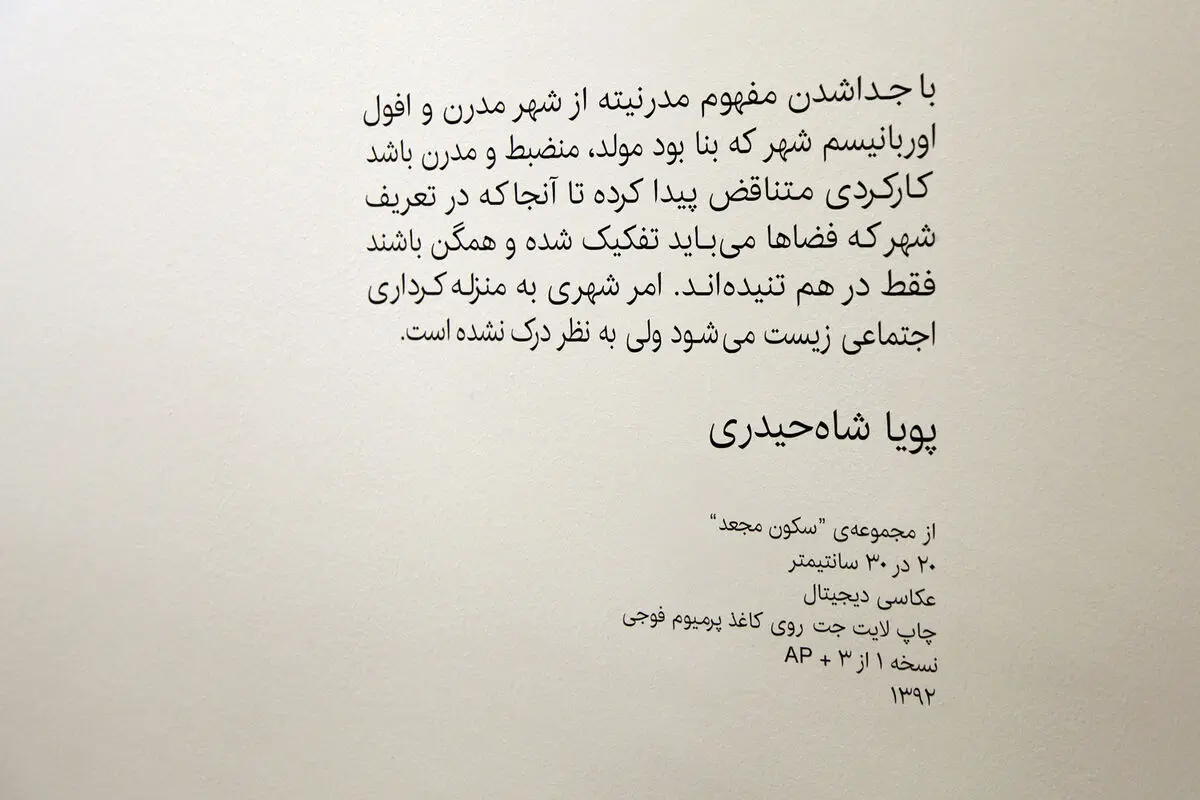 با جداشدن مفهوم مدرنیته از شهر مدرن و افول
اوربانیسم شهر که بنا بود مولد، منضبط و مدرن باشد
کارکردی متناقض پیدا کرده تا آنجا که در تعریف
شهر که فضاها می‌باید تفکیک شده و همگن باشند
فقط در هم تنیده‌اند. امر شهری به منزله کرداری
اجتماعی زیست می‌شود ولی به نظر درک نشده است.
پویا شاه‌حیدری
از مجموعه‌ی ”سکون مجعد“
۲۰ در ۳۰ سانتیمتر
عکاسی دیجیتال
چاپ لایت جت روی کاغذ پرمیوم فوجی
نسخه ۱ از ۳ + AP
۱۳۹۲